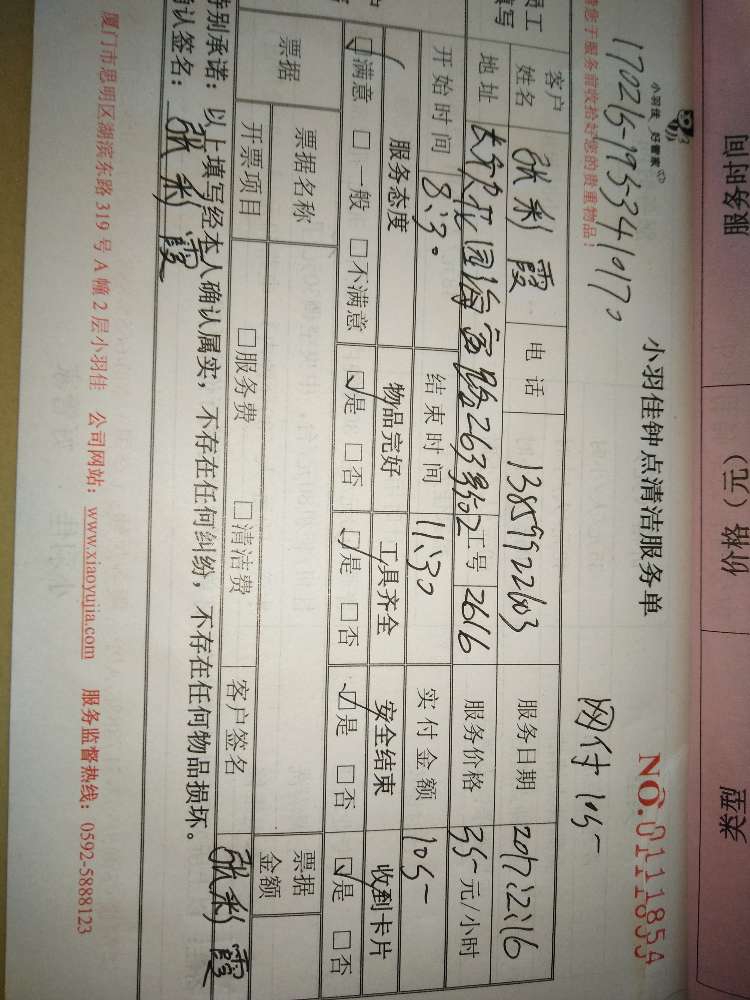 服务时间 价格（元） 类型
小羽佳 好管家
小羽佳钟点清洁服务单
NO.
170216195341017。
网付105-
请您于服务前收拾好您的贵重物品！
员工填写
客户姓名 张彩霞 电话 13859922603 服务日期 2017.2.16
地址 花园海富路263号502 工号 2616 服务价格 35-元/小时
开始时间 8:30 结束时间 11:30 实付金额 105-
服务态度 物品完好 工具齐全 安全结束 收到卡片
☑满意 □一般 □不满意 ☑是 □否 ☑是 □否 ☑是 □否 ☑是 □否
票据 票据名称 票据金额
开票项目 □服务费 □清洁费 客户签名 张彩霞
特别承诺：以上填写经本人确认属实，不存在任何纠纷，不存在任何物品损坏。
确认签名：张彩霞
厦门市思明区湖滨东路 319 号 A 幢 2 层小羽佳 公司网站：www.xiaoyujia.com 服务监督热线：0592-5888123